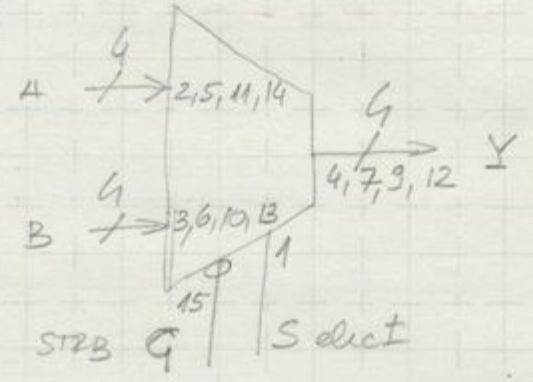 4
A 2,5,11,14
4
4,7,9,12 Y
4
B 3,6,10,13
1
15
STRB G Select